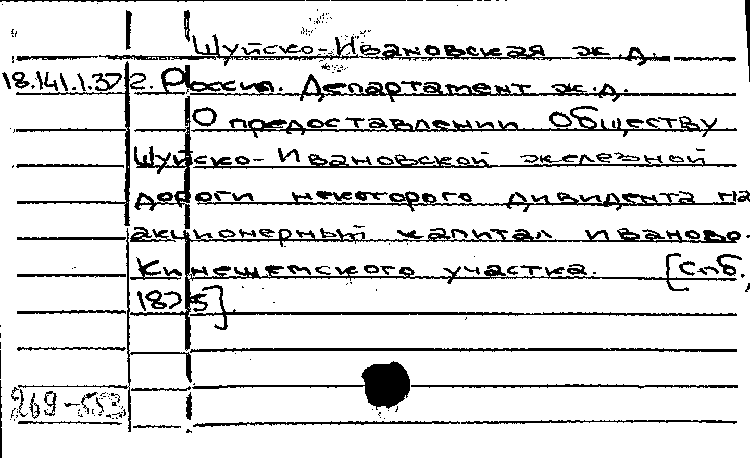 Шуйско-Ивановская ж.д.
18.141.1.37 2. Россия. Департамент ж.д.
О предоставлении Обществу
Шуйско-Ивановской железной
дороги некоторого дивидента на
акционерный капитал Иваново-
Кинешемского участка. [Спб.,
1875].
269-553